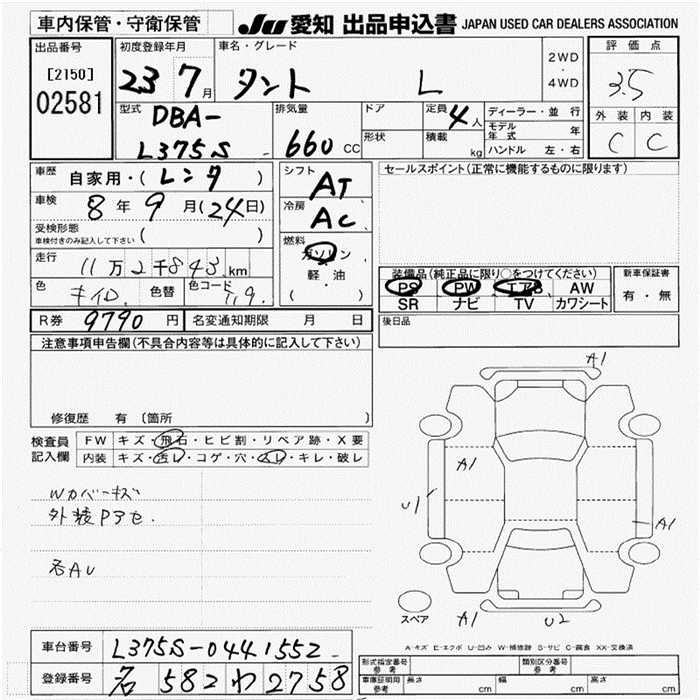 車内保管・守衛保管
JU 愛知 出品申込書 JAPAN USED CAR DEALERS ASSOCIATION
出品番号
[2150]
02581
初度登録年月
23 7月
車名・グレード
タント L
2WD
・
4WD
評価点
3.5
外装 内装
C C
型式
DBA-
L375S
排気量
660 cc
ドア
形状
定員 4人
積載 kg
ディーラー・並行
モデル年式 年
ハンドル 左・右
車歴
自家用・(レンタ)
車検
8年9月(24日)
受検形態
車検付きのみ記入して下さい ( )
走行
11万2千843km
色 キイロ 色替 色コード
シフト
AT
冷房
AC
燃料
ガソリン
軽・油
( )
セールスポイント(正常に機能するものに限ります)
装備品(純正品に限り○をつけてください)
PS PW エアB AW
SR ナビ TV カワシート
新車保証書
有・無
後日品
R券 9790円 名変通知期限 月 日
注意事項申告欄(不具合内容等は具体的に記入して下さい)
修復歴 有 〔箇所
検査員記入欄
FW キズ・飛石・ヒビ割・リペア跡・X要
内装 キズ・汚レ・コゲ・穴・スレ・キレ・破レ
Wカバーキズ
外装Pアセ.
各AU
A1
A1
U1
A1
スペア
A1
U2
A キズ E-エクボ U-凹み W-補修跡 S-サビ C-腐食 XX-交換済
車台番号 L375S-0441552
登録番号 名 582 わ 2758
形式指定番号 参考
類別区分番号 参考
車庫証明用 参考 長さ cm 幅 cm 高さ cm